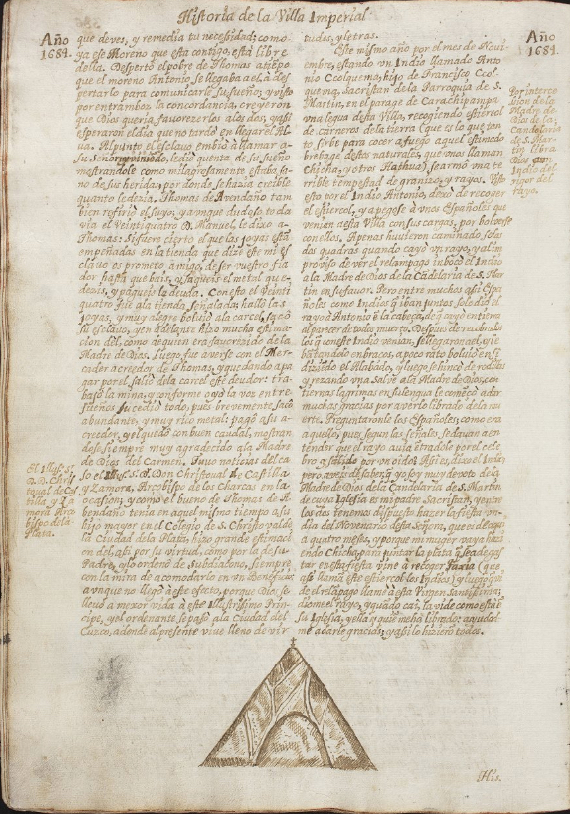 Historia de la Villa Imperial
Año
1684.
que deves, y remedia tu necessidad: como
ya ese Moreno que esta contigo, está libre
della. Despertó el pobre de Thomas a tiẽpo
que el moreno Antonio se llegaba a el, à des
pertarlo para comunicarle su sueño, y visto
por entrambos la concordancia, creyeron
que Dios queria favorezerlos a los dos; y assi
esperaron el dia que no tardo en llegar el Al
va. Al punto el esclavo embiò a llamar a
su Señor, y venido, le dió quenta de su sueño
mostrandole como milagrosamente estaba sa
no de sus heridas, por donde se hazia creible
quanto le dezia. Thomas de Avendaño tam
bien refirió el suyo, y aunque dudaba toda
via el Veintiquatro D. Manuel, le dixo a
Thomas: Si fuere cierto el que las joyas están
empeñadas en la tienda que dize este mi es
clavo os prometo, amigo, de ser vuestro fia
dor hasta que bais, y saqueis el metal que
dezis, y pagueis la deuda. Con esto el Veinti
quatro fue a la tienda señalada halló las
joyas, y muy alegre bolvió a la carcel, sacó
su esclavo, y en adelante hizo mucha estima
cion del, como a quien era favorecido de la
Madre de Dios. Luego fue a verse con el Mer-
cader acreedor de Thomas, y quedando a pa
gar por el, salió de la carcel este deudor: tra
bajó la mina, y conforme oyó la voz entre
sueños sucedió todo, pues brevemente sacó
abundante, y muy rico metal: pagó a su a-
creedor, y el quedó con buen caudal, mostran
dose siempre muy agradecido a la Madre
de Dios del Carmen. Tuvo noticias del ca
so el Illus. S. D. Don Christoval de Castilla
y Zamora, Arzobispo de las Charcas en la
ocasion; y como el bueno de Thomas de A-
bendaño tenia en aquel mismo tiempo a su
hijo mayor en el Colegio de S. Christoval de
la Ciudad de la Plata, hizo grande estimaci
on del, assi por su virtud, como por la de su
Padre, y lo ordenó de Subdiacono, siempre
con la mira de acomodarlo en un Beneficio:
aunque no llegó à este efecto, porque Dios se
llevó a mexor vida à este Illustrissimo Prin-
cipe, y el ordenante se passó a la Ciudad del
Cuzco, adonde al presente vive lleno de vir
El Illus. S.
D. D. Chris
toval de Cas
tilla y Za
mora Arzo
bispo de la
Plata.
tudes, y letras.
Este mismo año por el mes de Novi-
embre, estando un Indio llamado Anto
nio Ccolquema, hijo de Francisco Ccol-
quema, Sacristan de la Parroquia de S.
Martin, en el parage de Carachipampa
una legua desta Villa, recogiendo estiercol
de carneros de la tierra (que es lo que tan
to sirbe para cocer a fuego aquel estimado
brebage destos naturales, que unos llaman
Chicha, y otros
terrible tempestad de granizo, y rayos. Visto
esto por el Indio Antonio, dexó de recoger
el estiercol, y apegóse à unos Españoles que
venian a esta Villa con sus cargas, por bolverse
con ellos. Apenas huvieron caminado, solas
dos quadras quando cayó un rayo, y al im
proviso de ver el relampago imbocó el Indio
a la Madre de Dios de la Cãdelaria de S. Mar
tin en su favor. Pero entre muchos assi Espa
ñoles como Indios que iban juntos solo dió el
rayo à Antonio en la cabeza,
al parecer de todos muerto. Despues
los
bolvió en si
diziendo el Alabado, y luego se hincó de rodillas
y rezando una Salve a la Madre de Dios, con
tiernas lagrimas en su lengua le comẽçó a dar
muchas gracias por averlo librado de la mu
erte. Preguntaronle los Españoles, como era
aquello, pues segun las señales, se davan a en
tender que el rayo avia
Assi es, dixo el Indio
pero aveis de saber que soy muy devoto de la
Madre de Dios de la Candelaria de S. Martin
de cuya Iglesia es mi padre Sacristan, y entre
los dos tenemos dispuesto hazer la fiesta un
dia del Novenario desta Señora, que es de aqui
a quatro meses, y porque mi muger vaya hazi
endo Chicha, para juntar la plata que se a de gas
tar en esta fiesta vine à recoger Taxia (que
assi llaman este estiercol los Indios) y luego que vi
el relampago llamé à esta Virgen Santissima:
diome el rayo, y quando caí, la vide como está en
su Iglesia, y ella
me à darle gracias; y assi lo hizieron todos.
Año
1684.
Por interce
sion de la
Madre de
Dios de la
Candelaria
de S. Mar
tin se libra
un
Indio del
rigor del
rayo.
His.